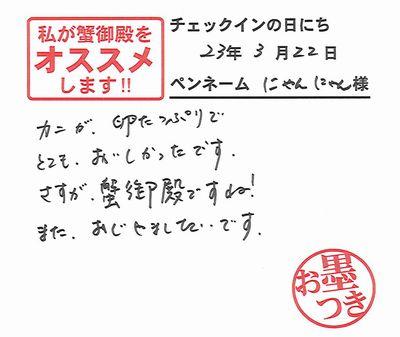 私が蟹御殿を
オススメ
します!!
チェックインの日にち
23年 3月22日
ペンネーム にゃんにゃん様
カニが、卵たっぷりで
とても、おいしかったです。
さすが、蟹御殿ですね!
また、おじゃましたいです。
お墨つき